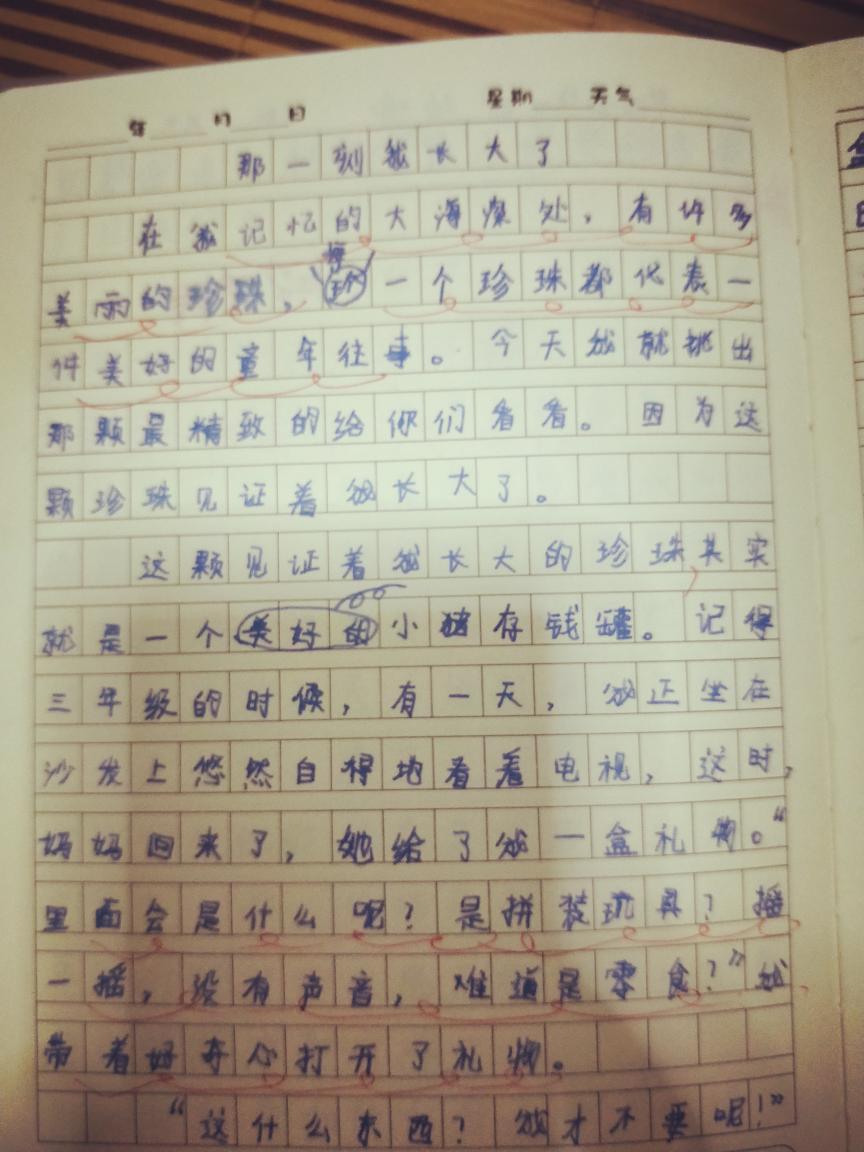 年 月 日 星期 天气
那一刻我长大了
在我记忆的大海深处,有许多
美丽的珍珠,每一个珍珠都代表一
件美好的童年往事。今天我就挑出
那颗最精致的给你们看看。因为这
颗珍珠见证着我长大了。
这颗见证着我长大的珍珠其实
就是一个美好的小猪存钱罐。记得
三年级的时候,有一天,我正坐在
沙发上悠然自得地看着电视,这时,
妈妈回来了,她给了我一盒礼物。“
里面会是什么呢?是拼装玩具?摇
一摇,没有声音,难道是零食?”我
带着好奇心打开了礼物。
“这什么东西?我才不要呢!”